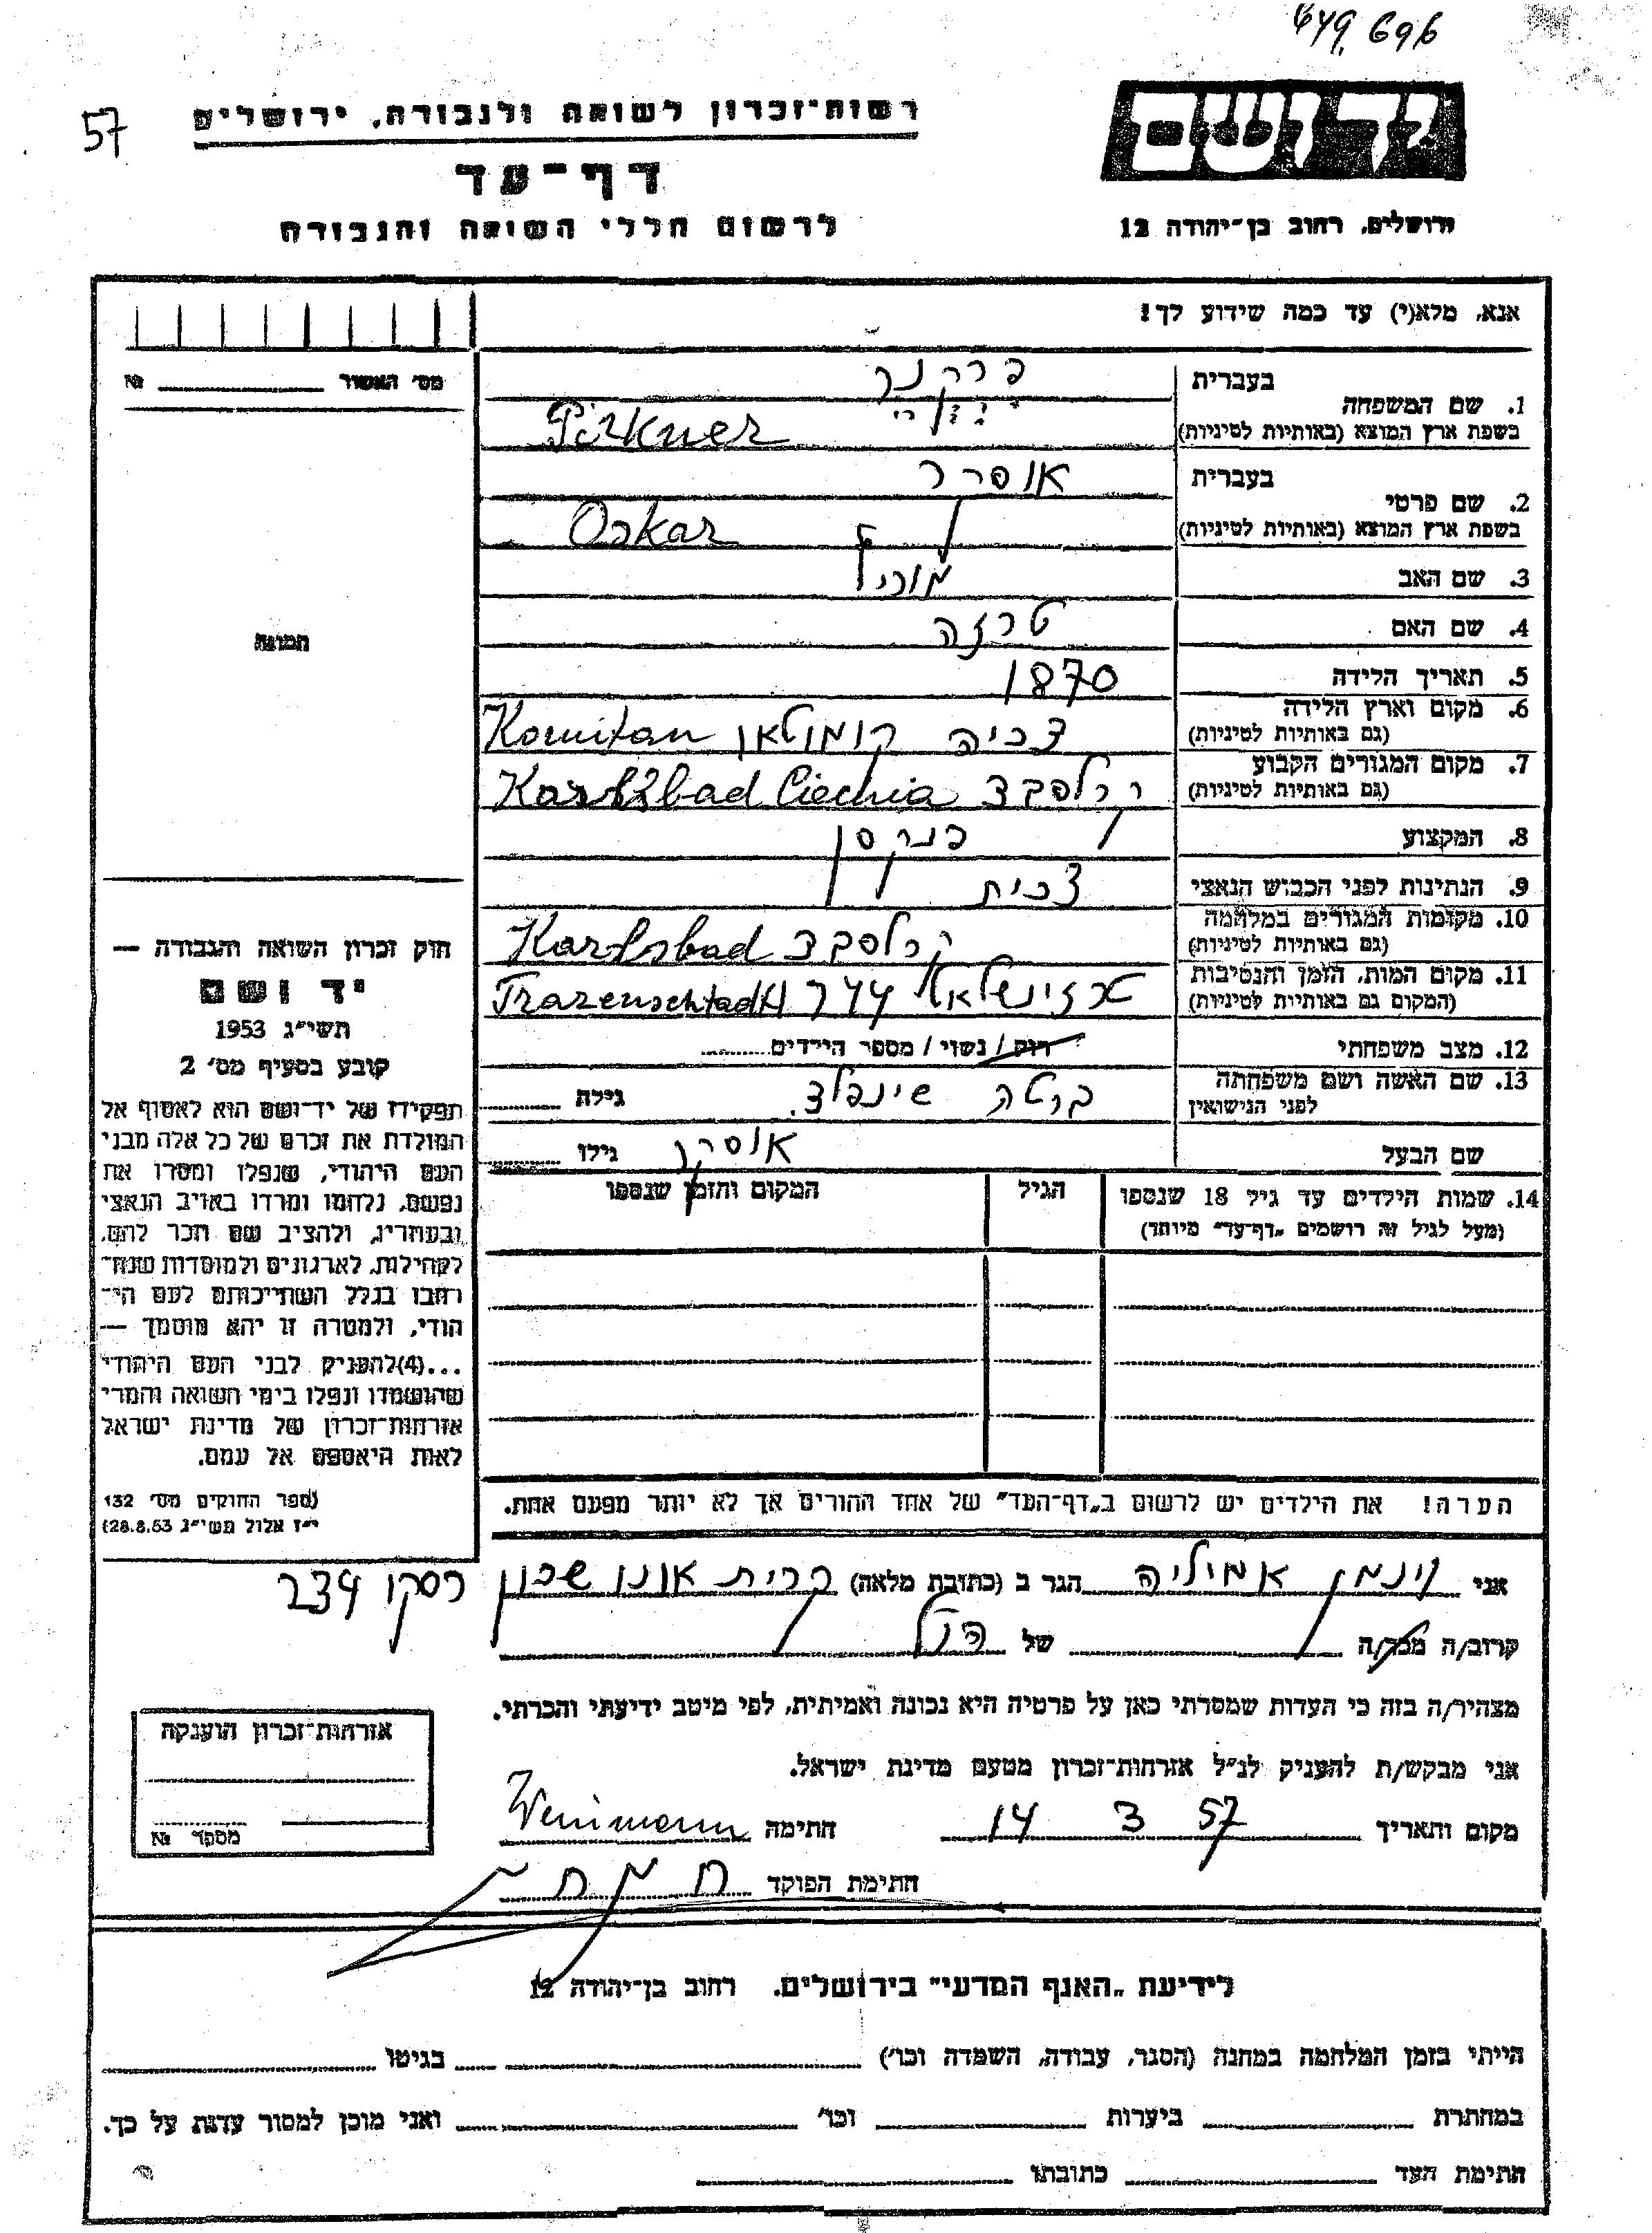 679,696
57
רשות־זכרון לשואה ולגבורה, ירושלים
יד ושם
דף־עד
לרשום חללי השואה והגבורה
ירושלים, רחוב בן־יהודה 12
אנא, מלא(י) עד כמה שידוע לך!
מס׳ האשור № 
בעברית פרקנר
1. שם המשפחה
בשפת ארץ המוצא (באותיות לטיניות) Pirkner
בעברית אוסקר
2. שם פרטי
בשפת ארץ המוצא (באותיות לטיניות) Oskar
3. שם האב מוריץ
4. שם האם טרזה
תמונה
5. תאריך הלידה 1870
6. מקום וארץ הלידה
(גם באותיות לטיניות) צכיה קומוטאן Komitan
7. מקום המגורים הקבוע
(גם באותיות לטיניות) קרלסבד Karlsbad Ciechia
8. המקצוע פנקסן
9. הנתינות לפני הכבוש הנאצי צכית
10. מקומות המגורים במלחמה
(גם באותיות לטיניות) קרלסבד Karlsbad
11. מקום המות, הזמן והנסיבות
(המקום גם באותיות לטיניות) Trazenschtadt
12. מצב משפחתי רוק / נשוי / מספר הילדים
13. שם האשה ושם משפחתה
לפני הנישואין ברטה שינפלד. גילה
שם הבעל אוסקר גילו
14. שמות הילדים עד גיל 18 שנספו הגיל המקום והזמן שנספו
(מעל לגיל זה רושמים „דף־עד״ מיוחד)
הערה! את הילדים יש לרשום ב„דף־העד״ של אחד ההורים אך לא יותר מפעם אחת.
חוק זכרון השואה והגבורה —
יד ושם
תשי״ג 1953
קובע בסעיף מס׳ 2
תפקידו של יד־ושם הוא לאסוף אל
המולדת את זכרם של כל אלה מבני
העם היהודי, שנפלו ומסרו את
נפשם, נלחמו ומרדו באויב הנאצי
ובעוזריו, ולהציב שם וזכר להם,
לקהילות, לארגונים ולמוסדות שנח־
רבו בגלל השתייכותם לעם הי־
הודי, ולמטרה זו יהא מוסמך —
...(4)להעניק לבני העם היהודי
שהושמדו ונפלו בימי השואה והמרי
אזרחות־זכרון של מדינת ישראל
לאות היאספם אל עמם.
(ספר החוקים מס׳ 132
י״ז אלול תשי״ג 28.8.53)
אני וינמן אמיליה הגר ב (כתובת מלאה) קרית אונו שכון רסקו 234
קרוב/ה מכר/ה של הנ״ל
מצהיר/ה בזה כי העדות שמסרתי כאן על פרטיה היא נכונה ואמיתית, לפי מיטב ידיעתי והכרתי.
אני מבקש/ת להעניק לנ״ל אזרחות־זכרון מטעם מדינת ישראל.
מקום ותאריך 14 3 57 חתימה Weinmann
חתימת הפוקד
אזרחות־זכרון הוענקה
מספר №
לידיעת „האגף המדעי״ בירושלים. רחוב בן־יהודה 12
הייתי בזמן המלחמה במחנה (הסגר, עבודה, השמדה וכו׳) בגיטו
במחתרת ביערות וכו׳ ואני מוכן למסור עדות על כך.
חתימת העד כתובתו